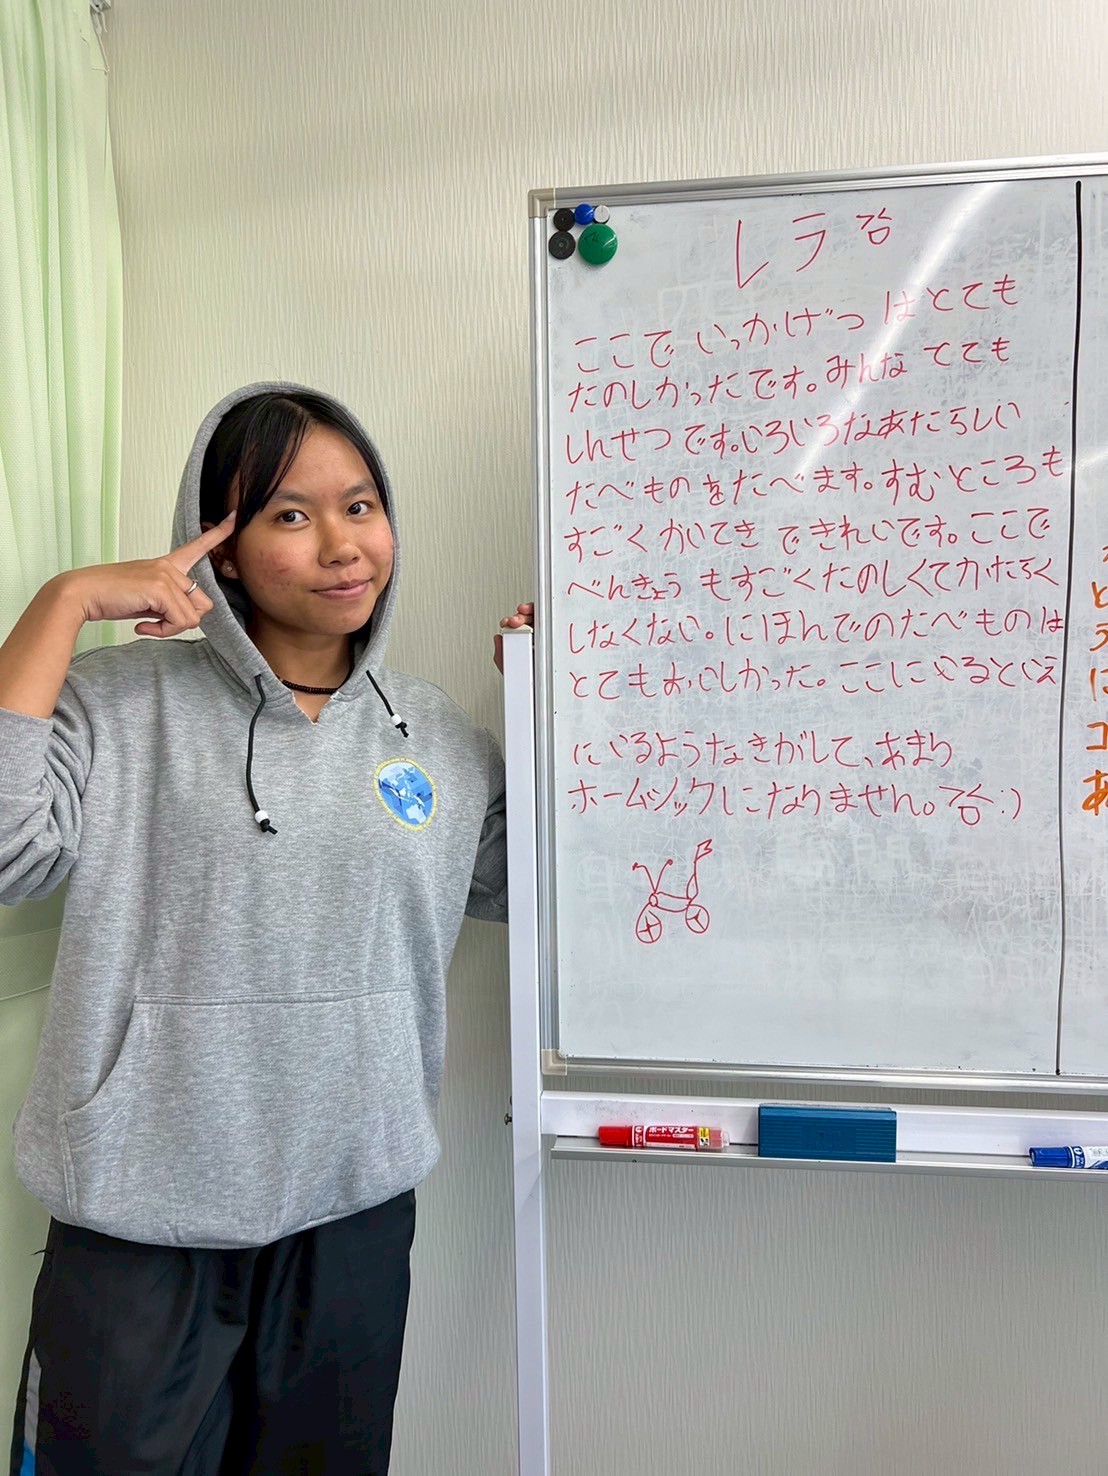 レラ
ここで いっかげつ はとても
たのしかったです。みんな とても
しんせつです。いろいろなあたらしい
たべものをたべます。すむところも
すごくかいてきできれいです。ここで
べんきょうもすごくたのしくてかたらく
しなくない。にほんでのたべものは
とてもおいしかった。ここにいるといえ
にいるようなきがして、あまり
ホームシックしになりません。:)
ボードマスター
と
に
コ
あ